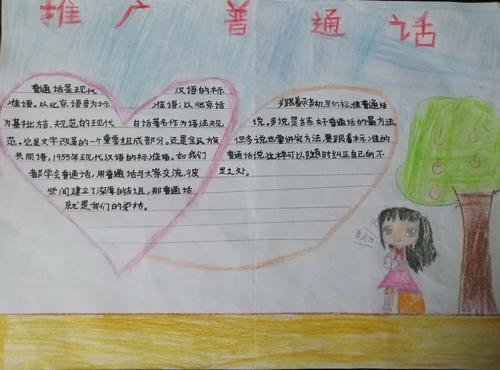 推广普通话
普通话是现代 汉语的标
准语。以北京语音为标 准语，以北京话
为基础方 规范的现代 白话著作为语法规
范。它是文字改革的一个重要组成部分。还是全民族
共同语。1955年现代汉语的标准语。如我们
都学会普通话，用普通话与大家交流，彼
此间建立了深厚的友谊，那普通话
就是我们的桥。
多跟着机里的标准普通话
说。多说是练好普通话的最方法。
但多说也要讲究方法，要跟着标准的
普通话说，这样可以随时纠正自己的不
足之处。